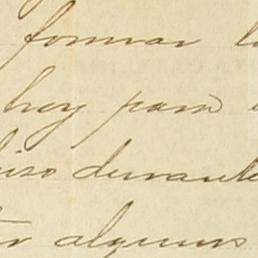 formar l
hoy para
iso durante
algunos